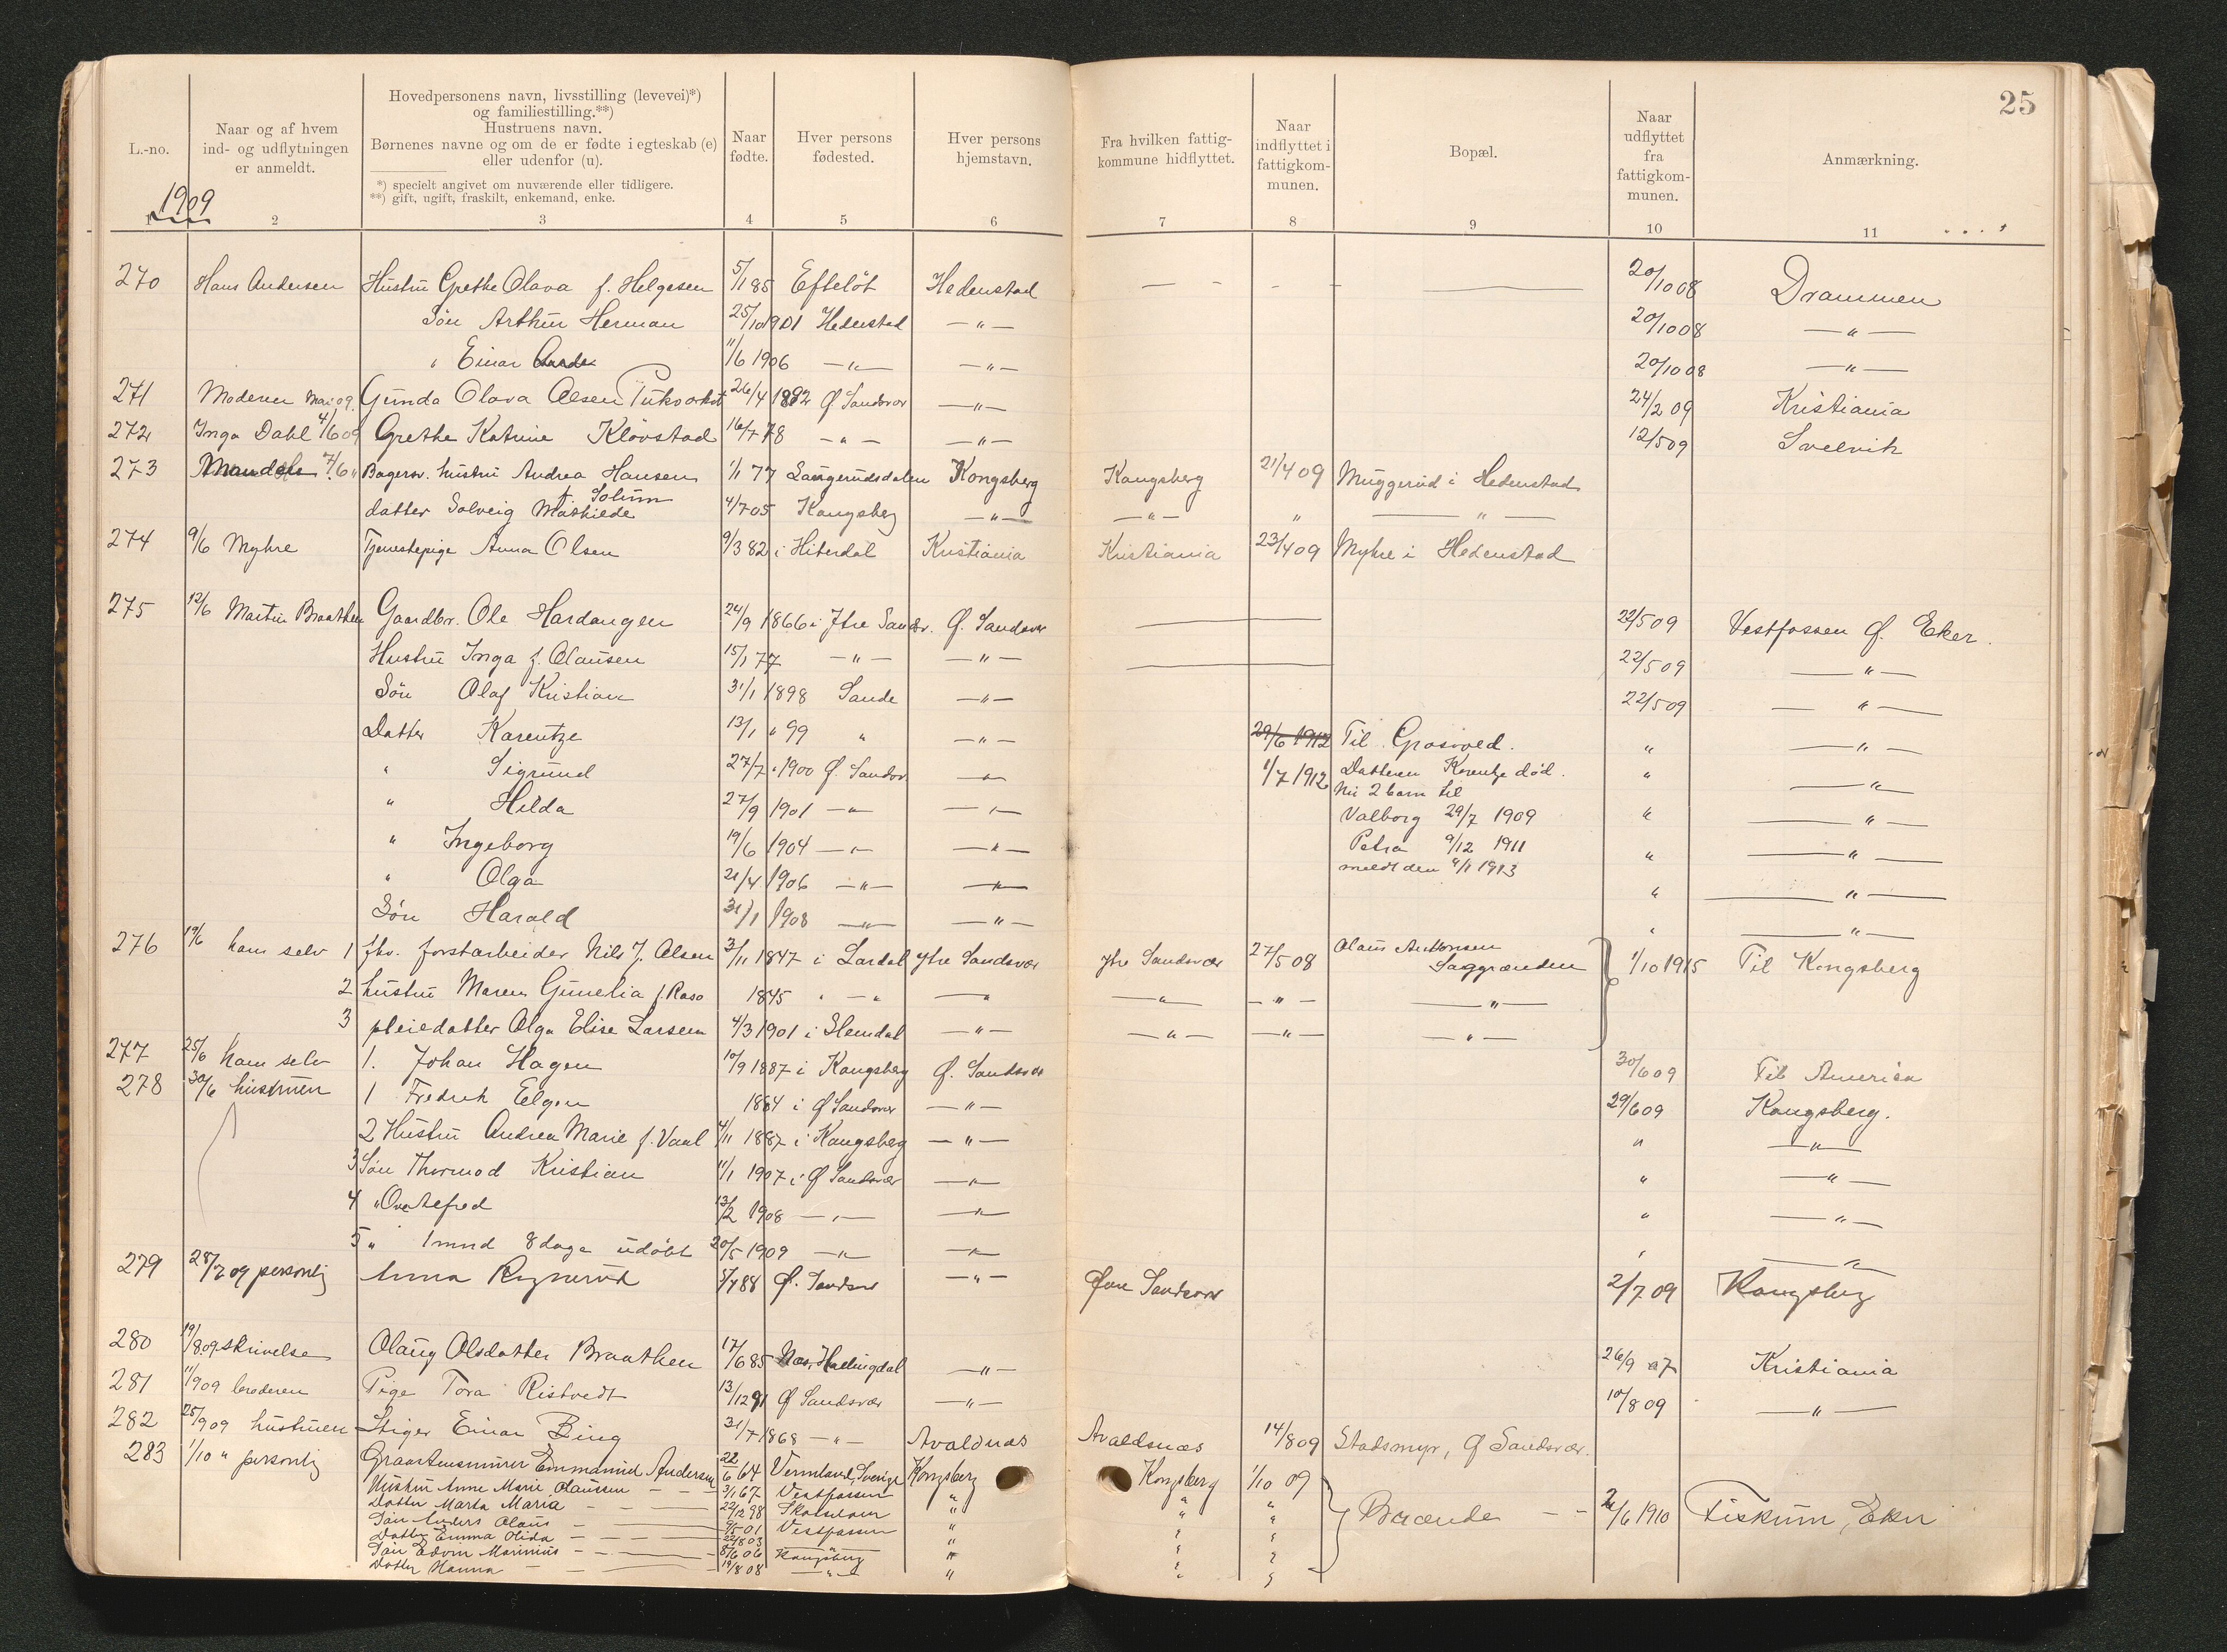 25
L.-no. Naar og af hvem ind- og udflytningen er anmeldt. Hovedpersonens navn, livsstilling (levevei)*) og familiestilling.**) Hustruens navn. Børnenes navne og om de er fødte i egteskab (e) eller udenfor (u). Naar fødte. Hver persons fødested. Hver persons hjemstavn. Fra hvilken fattigkommune hidflyttet. Naar indflyttet i fattigkommunen. Bopæl. Naar udflyttet fra fattigkommunen. Anmærkning.
*) specielt angivet om nuværende eller tidligere.
**) gift, ugift, fraskilt, enkemand, enke.
1909
1 2 3 4 5 6 7 8 9 10 11
270 Hans Andersen Hustru Grethe Olava f. Helgesen 5/1 85 Efteløt Hedenstad — - - - —— 20/10 08 Drammen
Søn Arthur Herman 25/10 1901 Hedenstad —"— 20/10 08 —"—
" Einar 11/6 1906 —"— —"— 20/10 08 —"—
271 Moderen Mai 09. Gunda Olava Olsen 26/4 1892 Ø Sandsvær —"— 24/2 09 Kristiania
272 Inga Dahl 4/6 09 Grethe Katrine Kløvstad 16/7 78 —"— —"— 12/5 09 Svelvik
273 7/6 " Bagersv. hustru Andrea Hansen 1/1 77 Laugerudsdalen Kongsberg Kongsberg 21/4 09 Muggerud i Hedenstad
f. Solum
datter Solveig Mathilde 4/7 05 Kongsberg —"— —"— " —— " ——
274 9/6 Myhre Tjenestepige Anna Olsen 9/3 82 i Hiterdal Kristiania Kristiania 23/4 09 Myhre i Hedenstad
275 12/6 Martin Braathen Gaardbr. Ole Hardangen 24/9 1866 i Ytre Sandsv. Ø. Sandsvær —— 22/5 09 Vestfossen Ø. Eker.
Hustru Inga f. Olausen 15/1 77 —"— —"— —— 22/5 09 —"—
Søn Olaf Kristian 31/1 1898 Sande —"— 22/5 09 —"—
Datter Karentze 13/1 " 99 " —"— 29/6 1912 Til Grosvod. " —"—
" Sigrund 27/7 " 1900 Ø. Sandsv —"— 1/7 1912 Datteren Karentze død. " —"—
Nu 2 barn til
" Hilda 27/9 1901 —"— —"— Valborg 29/7 1909 " —"—
" Ingeborg 19/6 1904 —"— —"— Petra 9/12 1911 " —"—
meldt den 9/1 1913
" Olga 21/4 1906 —"— —"— " —"—
Søn Harald 31/1 1908 —"— —"— " —"—
276 19/6 ham selv 1 fhv. forstarbeider Nils J. Olsen 3/11 1847 i Lardal Ytre Sandsvær Ytre Sandsvær 27/5 08 Olaus Anthonsen Saggrænden 1/10 1915 Til Kongsberg
2 hustru Maren Gunelia f. Raso 1845 " —" —"— —"— —"— —"—
3 pleiedatter Olga Elise Larsen 4/3 1901 i Slemdal —"— —"— —"— —"—
277 25/6 ham selv 1. Johan Hagen 10/9 1887 i Kongsberg Ø. Sandsvær 30/6 09 Til Amerika
278 30/6 hustruen 1 Fredrik Elgen 1884 i Ø Sandsvær —"— 29/6 09 Kongsberg.
2 Hustru Andrea Marie f. Vaal 4/11 1887 i Kongsberg —"— " —"—
3 Søn Thormod Kristian 11/1 1907 i Ø Sandsvær —"— " —"—
4 " Ove Alfred 13/2 1908 —"— —"— " —"—
5 " 1 mnd 8 dage udøbt 20/5 1909 —"— —"— " —"—
279 28/7 09 personlig Anna Rygnerud 5/4 88 Ø. Sandsvær —"— Øvre Sandsvær 2/7 09 Kongsberg
280 19/8 09 skrivelse Olaug Olsdatter Braathen 17/6 85 Næs, Hallingdal —"— 26/9 07 Kristiania
281 1/9 09 broderen Pige Tora Ristvedt 13/12 91 Ø Sandsvær —"— 10/8 09 —"—
282 25/9 09 hustruen Stiger Einar Bing 31/7 1868 —"— Avaldnæs Avaldsnæs 14/8 09 Stadsmyr, Ø Sandsvær.
283 1/10 " personlig Graastensmurer Emmanuel Andersen 22/6 64 Vermland, Sverige Kongsberg Kongsberg 1/10 09
Hustru Anne Marie Olaussen — — 3/1 67 Vestfossen " " "
Datter Marta Maria — — 22/12 98 " " "
Søn Anders Olaus — — 9/5 01 Vestfossen " " " Braænde — 2/6 1910 Fiskum, Eker
Datter Emma Olida — — 22/8 03 " " "
Søn Edvin Marinius — — 8/6 06 Kongsberg " " "
Datter Hanna — — 19/8 08 —"— " " "